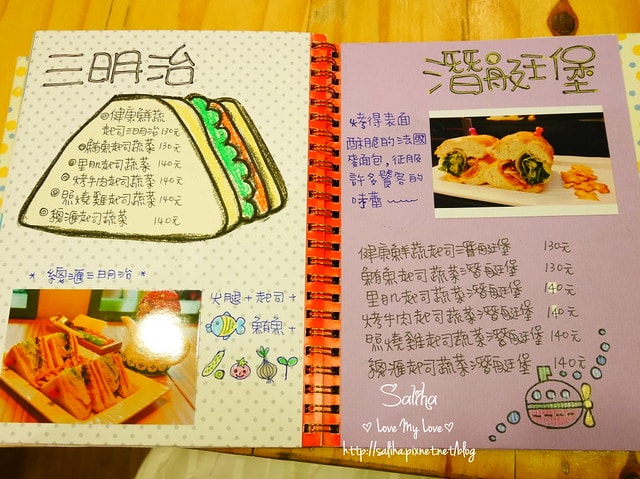 三明治
健康鮮蔬
起司三明治 130元
鮪魚起司蔬菜 130元
里肌起司蔬菜 140元
烤牛肉起司蔬菜 140元
照燒雞起司蔬菜 140元
總滙起司蔬菜 140元
* 總滙三明治 *
火腿+起司+
鮪魚+
潛艇堡
烤得表面
酥脆的法國
麵包,征服
許多饕客的
味蕾
健康鮮蔬起司潛艇堡 130元
鮪魚起司蔬菜潛艇堡 130元
里肌起司蔬菜潛艇堡 140元
烤牛肉起司蔬菜潛艇堡 140元
照燒雞起司蔬菜潛艇堡 140元
總滙起司蔬菜潛艇堡 140元
Saliha
♡ Love My Love ♡
http://saliha.pixnet.net/blog